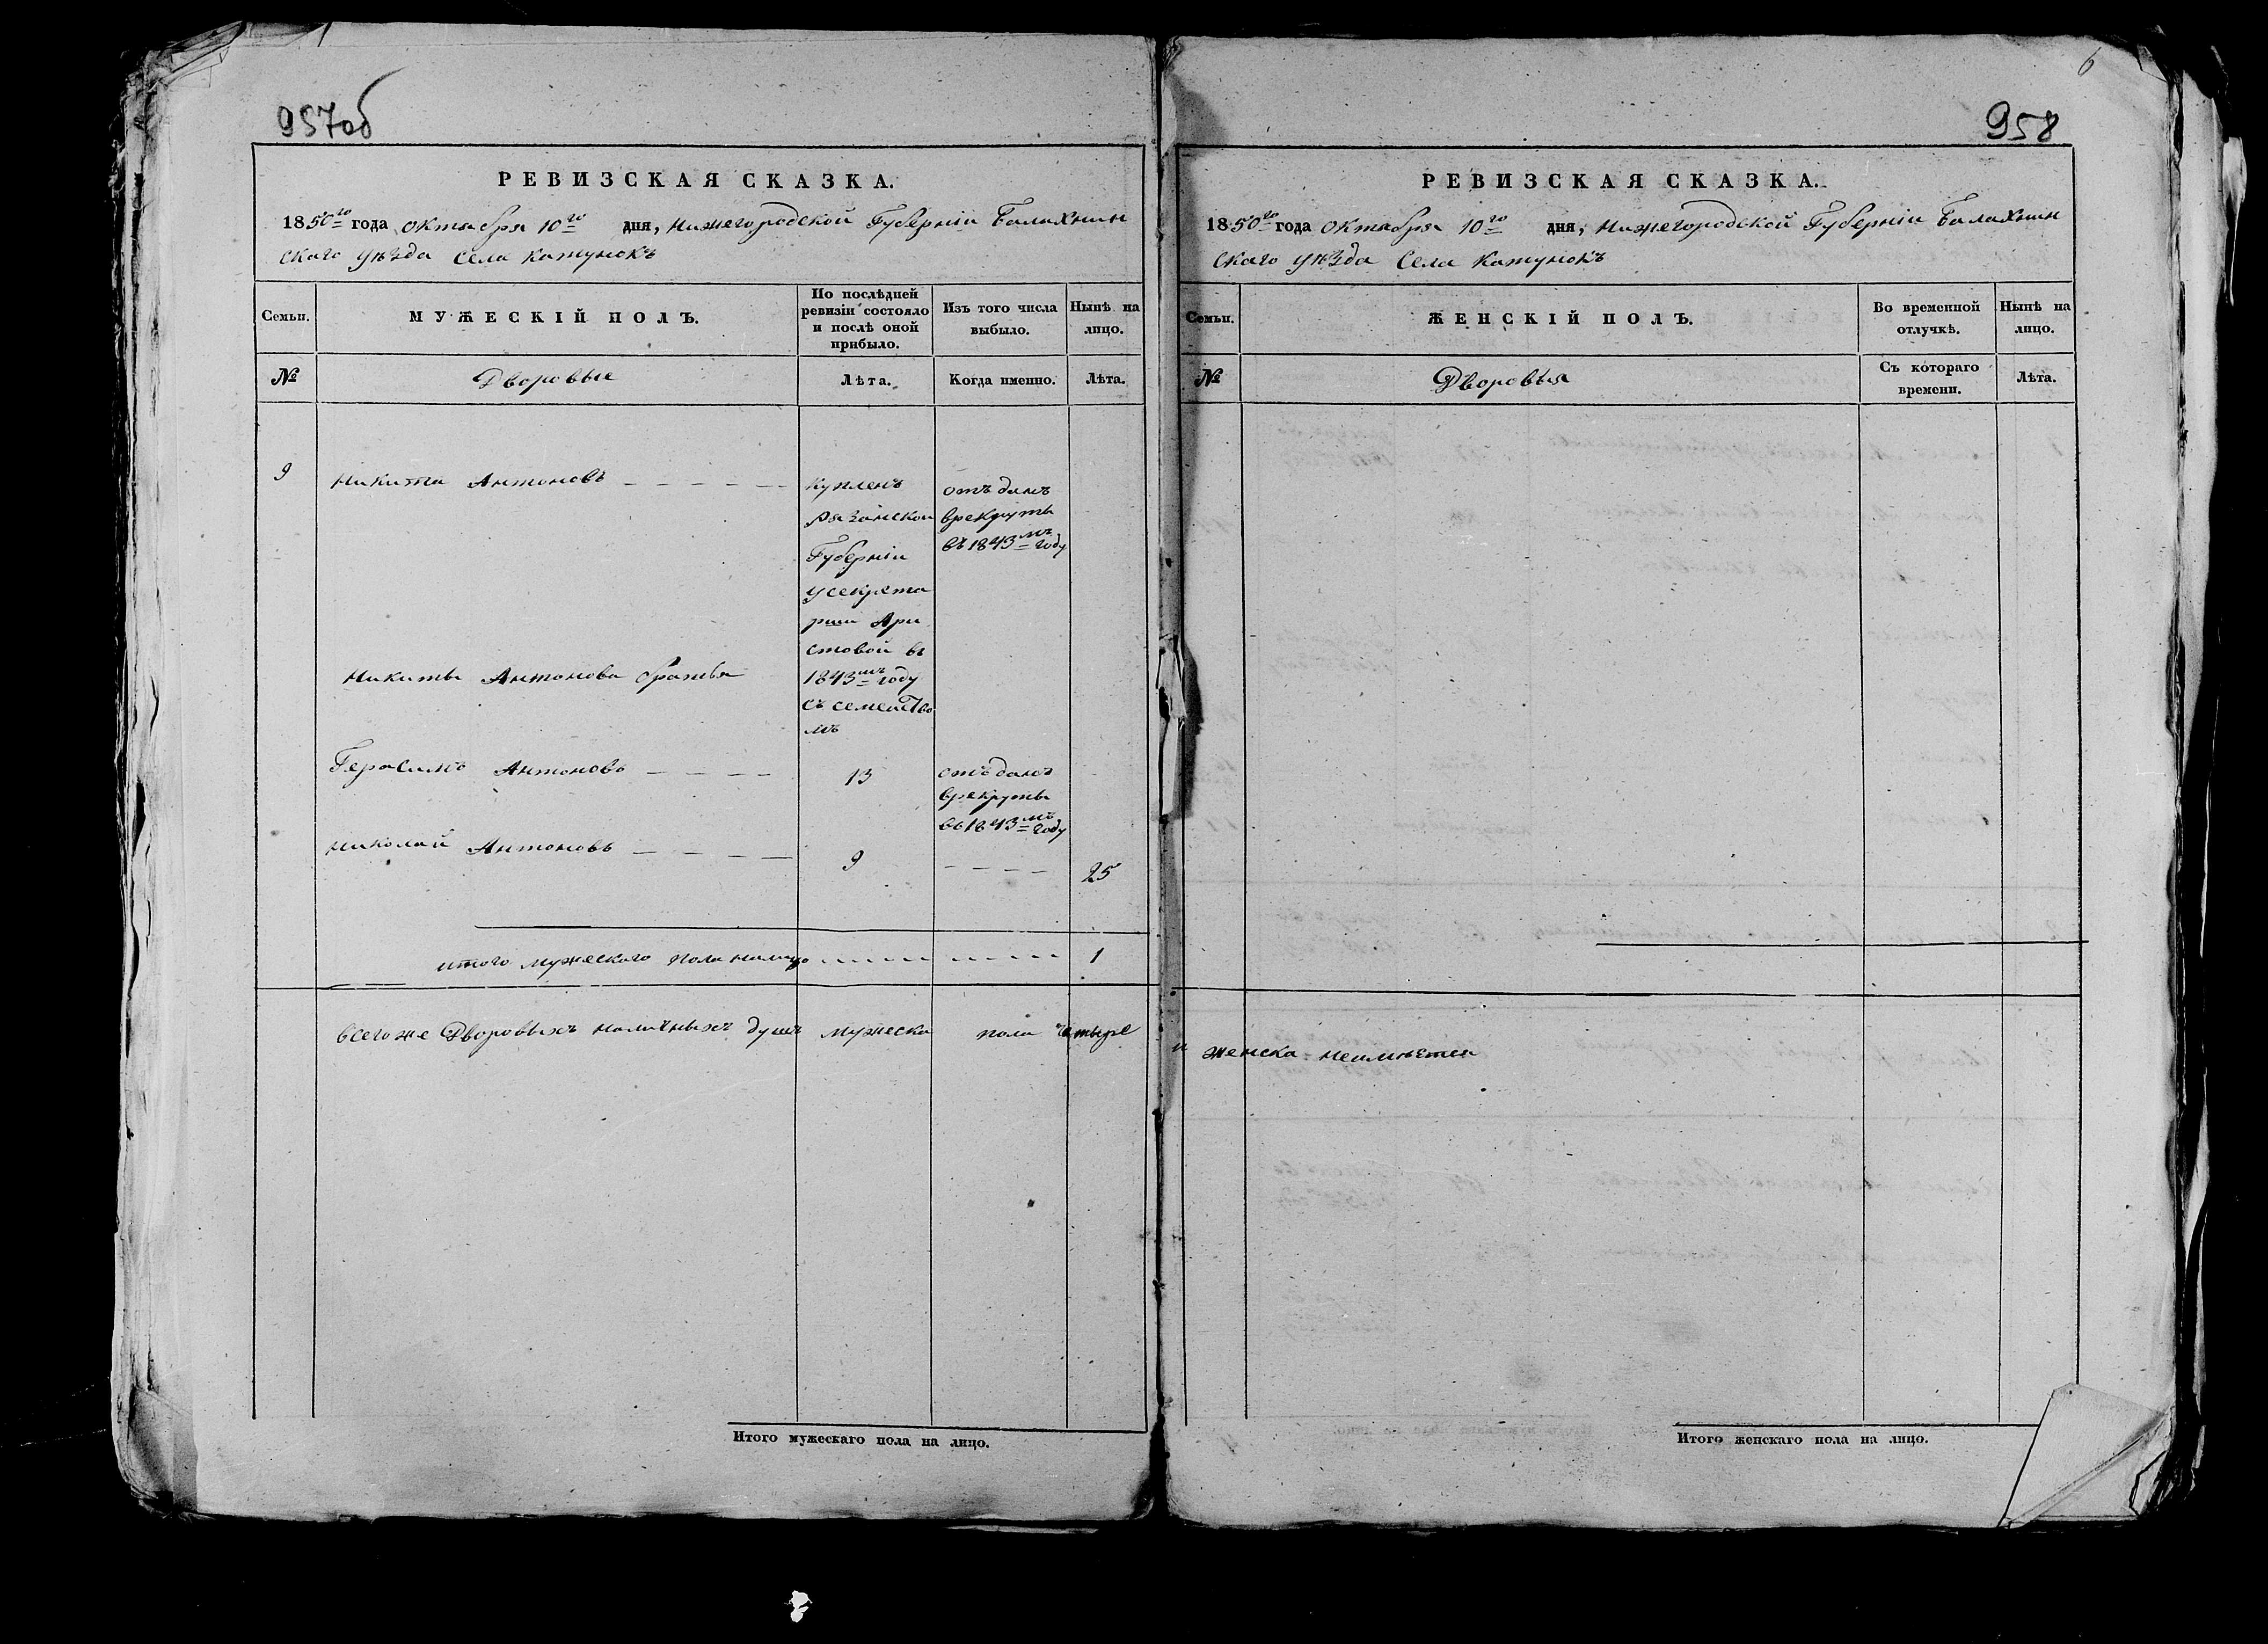 957об
РЕВИЗСКАЯ СКАЗКА.
1850го года октября 10го дня, Нижегородской Губерніи Балахнин
скаго уѣзда села Катунокъ
Семьи.
МУЖЕСКІЙ ПОЛЪ.
По послѣдней
ревизіи состояло
и послѣ оной
прибыло.
Изъ того числа
выбыло.
Нынѣ на
лицо.
№
Дворовые
Лѣта.
Когда именно.
Лѣта.
9
Никита Антоновъ
купленъ
Рязанской
Губерніи
у секрета
рши Ари
стовой въ
1843мъ году
съ семейство
мъ
отъданъ
врекруты
въ 1843мъ году
Никиты Антонова братья
Герасимъ Антоновъ
13
отъданъ
врекруты
въ 1843мъ году
Николай Антоновъ
9
25
итого мужескаго пола налицо
1
всегоже Дворовыхъ наличныхъ душъ мужеска пола четыре
Итого мужескаго пола на лицо.
6
958
РЕВИЗСКАЯ СКАЗКА.
1850го года октября 10го дня, Нижегородской Губерніи Балахнин
скаго уѣзда села Катунокъ
Семьи.
ЖЕНСКІЙ ПОЛЪ.
Во временной
отлучкѣ.
Нынѣ на
лицо.
№
Дворовыя
Съ котораго
времени.
Лѣта.
и женска неимѣется
Итого женскаго пола на лицо.